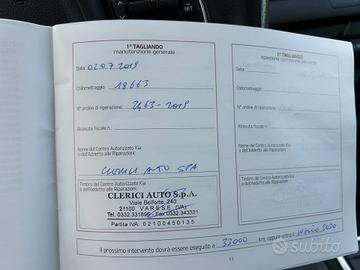 1° TAGLIANDO
manutenzione generale
Data 02.07.2019
Chilometraggio: 18663
N° ordine di riparazione: 2463-2019
Ricevuta fiscale n.:
Nome del Centro Autorizzato Kia
e dell'Addetto alle Riparazioni:
CLERICI AUTO SPA
Timbro del Centro Autorizzato Kia
e dell'Addetto alle Riparazioni:
CLERICI AUTO S.p.A.
Viale Belforte, 240
21100 VARESE (VA)
Tel. 0332.331866 Fax 0332.343321
Partita IVA 02100450135
1° TAGLIANDO
Data
Chilometraggio:
N° ordine di riparazione:
Ricevuta fiscale n.:
Nome del Centro Autorizzato Kia
e dell'Addetto alle Riparazioni:
Timbro del Centro Autorizzato Kia
e dell'Addetto alle Riparazioni:
Il prossimo intervento dovrà essere eseguito a 33000 km, oppure entro il
13
SET
subito